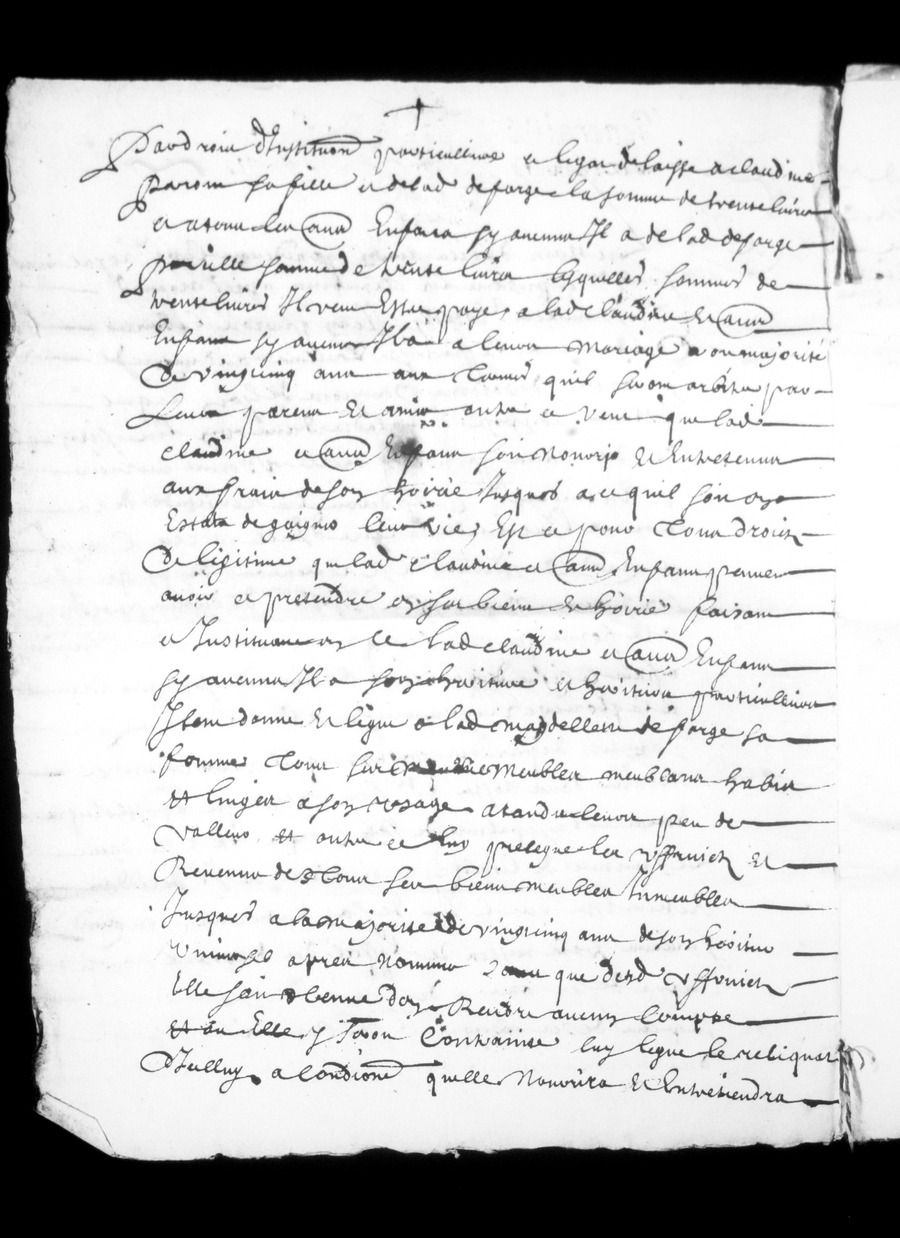 Par droit d'Institution particulliere et legat delaisse a claudine
parom sa fille et de lad defarge la somme de trente livres
et a tous les aud Enfans sy aucuns Il a de lad defarge
pareille somme de trente livres lesquelles sommes de
trente livres Il veut Estre payes a lad claudine et aud
Enfans sy aucuns Il a a leur mariage ou majorité
De vingtcinq ans aux termes quil seront arbitre par
Leurs parens et amis outre ce veut que lad
claudine et aud Enfans soit nouris et Entretenus
aux frais de son hoirie Jusques a ce quil soit en
Estat de gaigner leur vie, Et ce pour tous droits
De legitime que lad claudine et aud Enfans peuvent
avoir et pretendre en ses biens et hoirie faisant
et Instituant en ce lad claudine et aud Enfans
sy aucuns Il a son heritiere et heritiers particulliers
Item donne et legue a lad magdelleine defarge sa
femme tous ses meubles meublans habits
et linges a son usage atandu leur peu de
valleur et outre ce luy prelegue les usffruicts et
Revenus de tous ses biens meubles Immeubles
Jusques a la majorite de vingtcinq ans de son heritier
universel apres nommé que desd usffruicts
Elle soit tenue d'en Rendre aucun compte
et ou Elle y seroit contrainte luy legue le reliquat
D'Icelluy a condition quelle nourira et Entretiendra